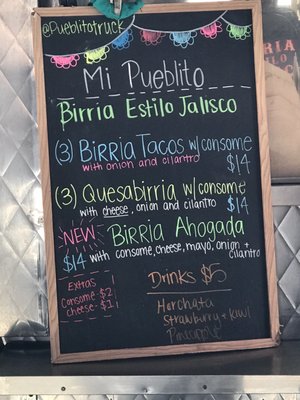 @Pueblitotruck
Mi Pueblito
Birria Estilo Jalisco
(3) Birria Tacos w/ consome
with onion and cilantro
$14
(3) Quesabirria w/ consome
with cheese, onion and cilantro
$14
NEW
Birria Ahogada
$14 with consome, cheese, mayo, onion +
cilantro
Extras
Consome $2
cheese - $1
Drinks $5
Horchata
Strawberry + Kiwi
Pineapple